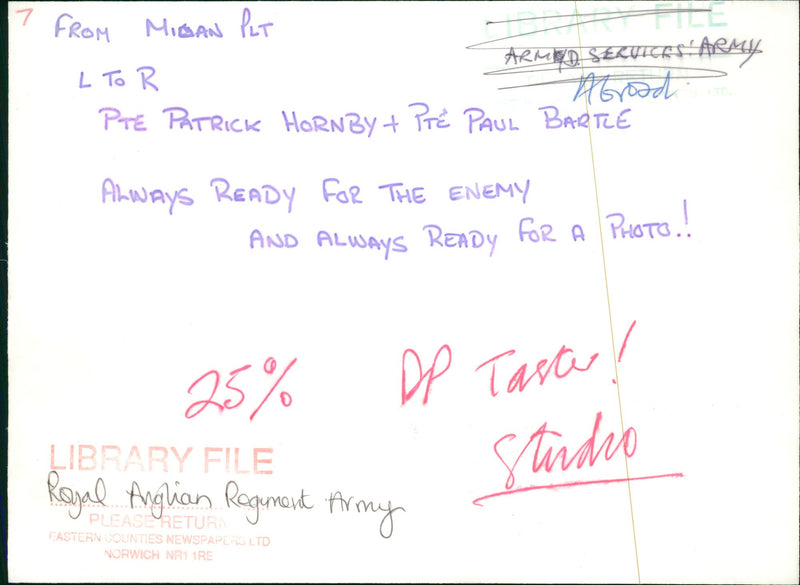 7
FROM MILAN PLT
LIBRARY FILE
ARMED SERVICES: ARMY
Abroad.
L TO R
PTE PATRICK HORNBY + PTE PAUL BARTLE
ALWAYS READY FOR THE ENEMY
AND ALWAYS READY FOR A PHOTO!!
25% DP Taster!
Studio
LIBRARY FILE
Royal Anglian Regiment Army
PLEASE RETURN
EASTERN COUNTIES NEWSPAPERS LTD
NORWICH NR1 1RE